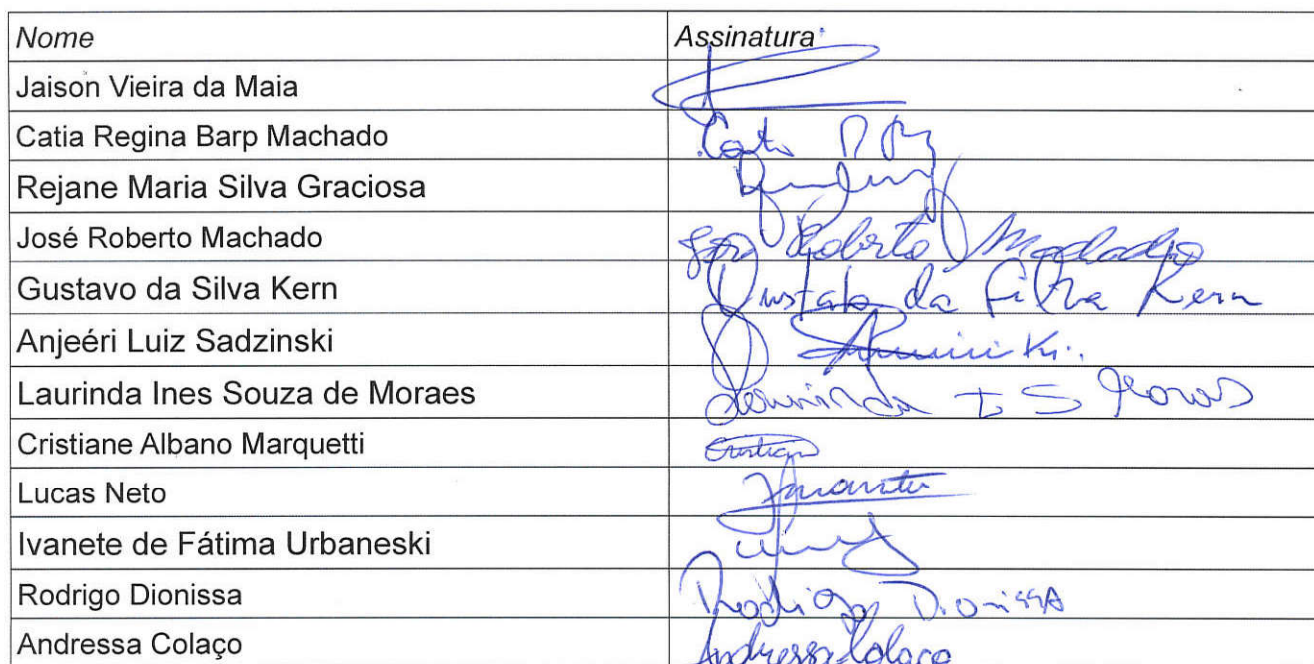 Nome Assinatura
Jaison Vieira da Maia
Catia Regina Barp Machado
Rejane Maria Silva Graciosa
José Roberto Machado José Roberto Machado
Gustavo da Silva Kern Gustavo da Silva Kern
Anjeéri Luiz Sadzinski
Laurinda Ines Souza de Moraes Laurinda I S Moraes
Cristiane Albano Marquetti
Lucas Neto
Ivanete de Fátima Urbaneski
Rodrigo Dionissa Rodrigo Dionissa
Andressa Colaço Andressa Colaço